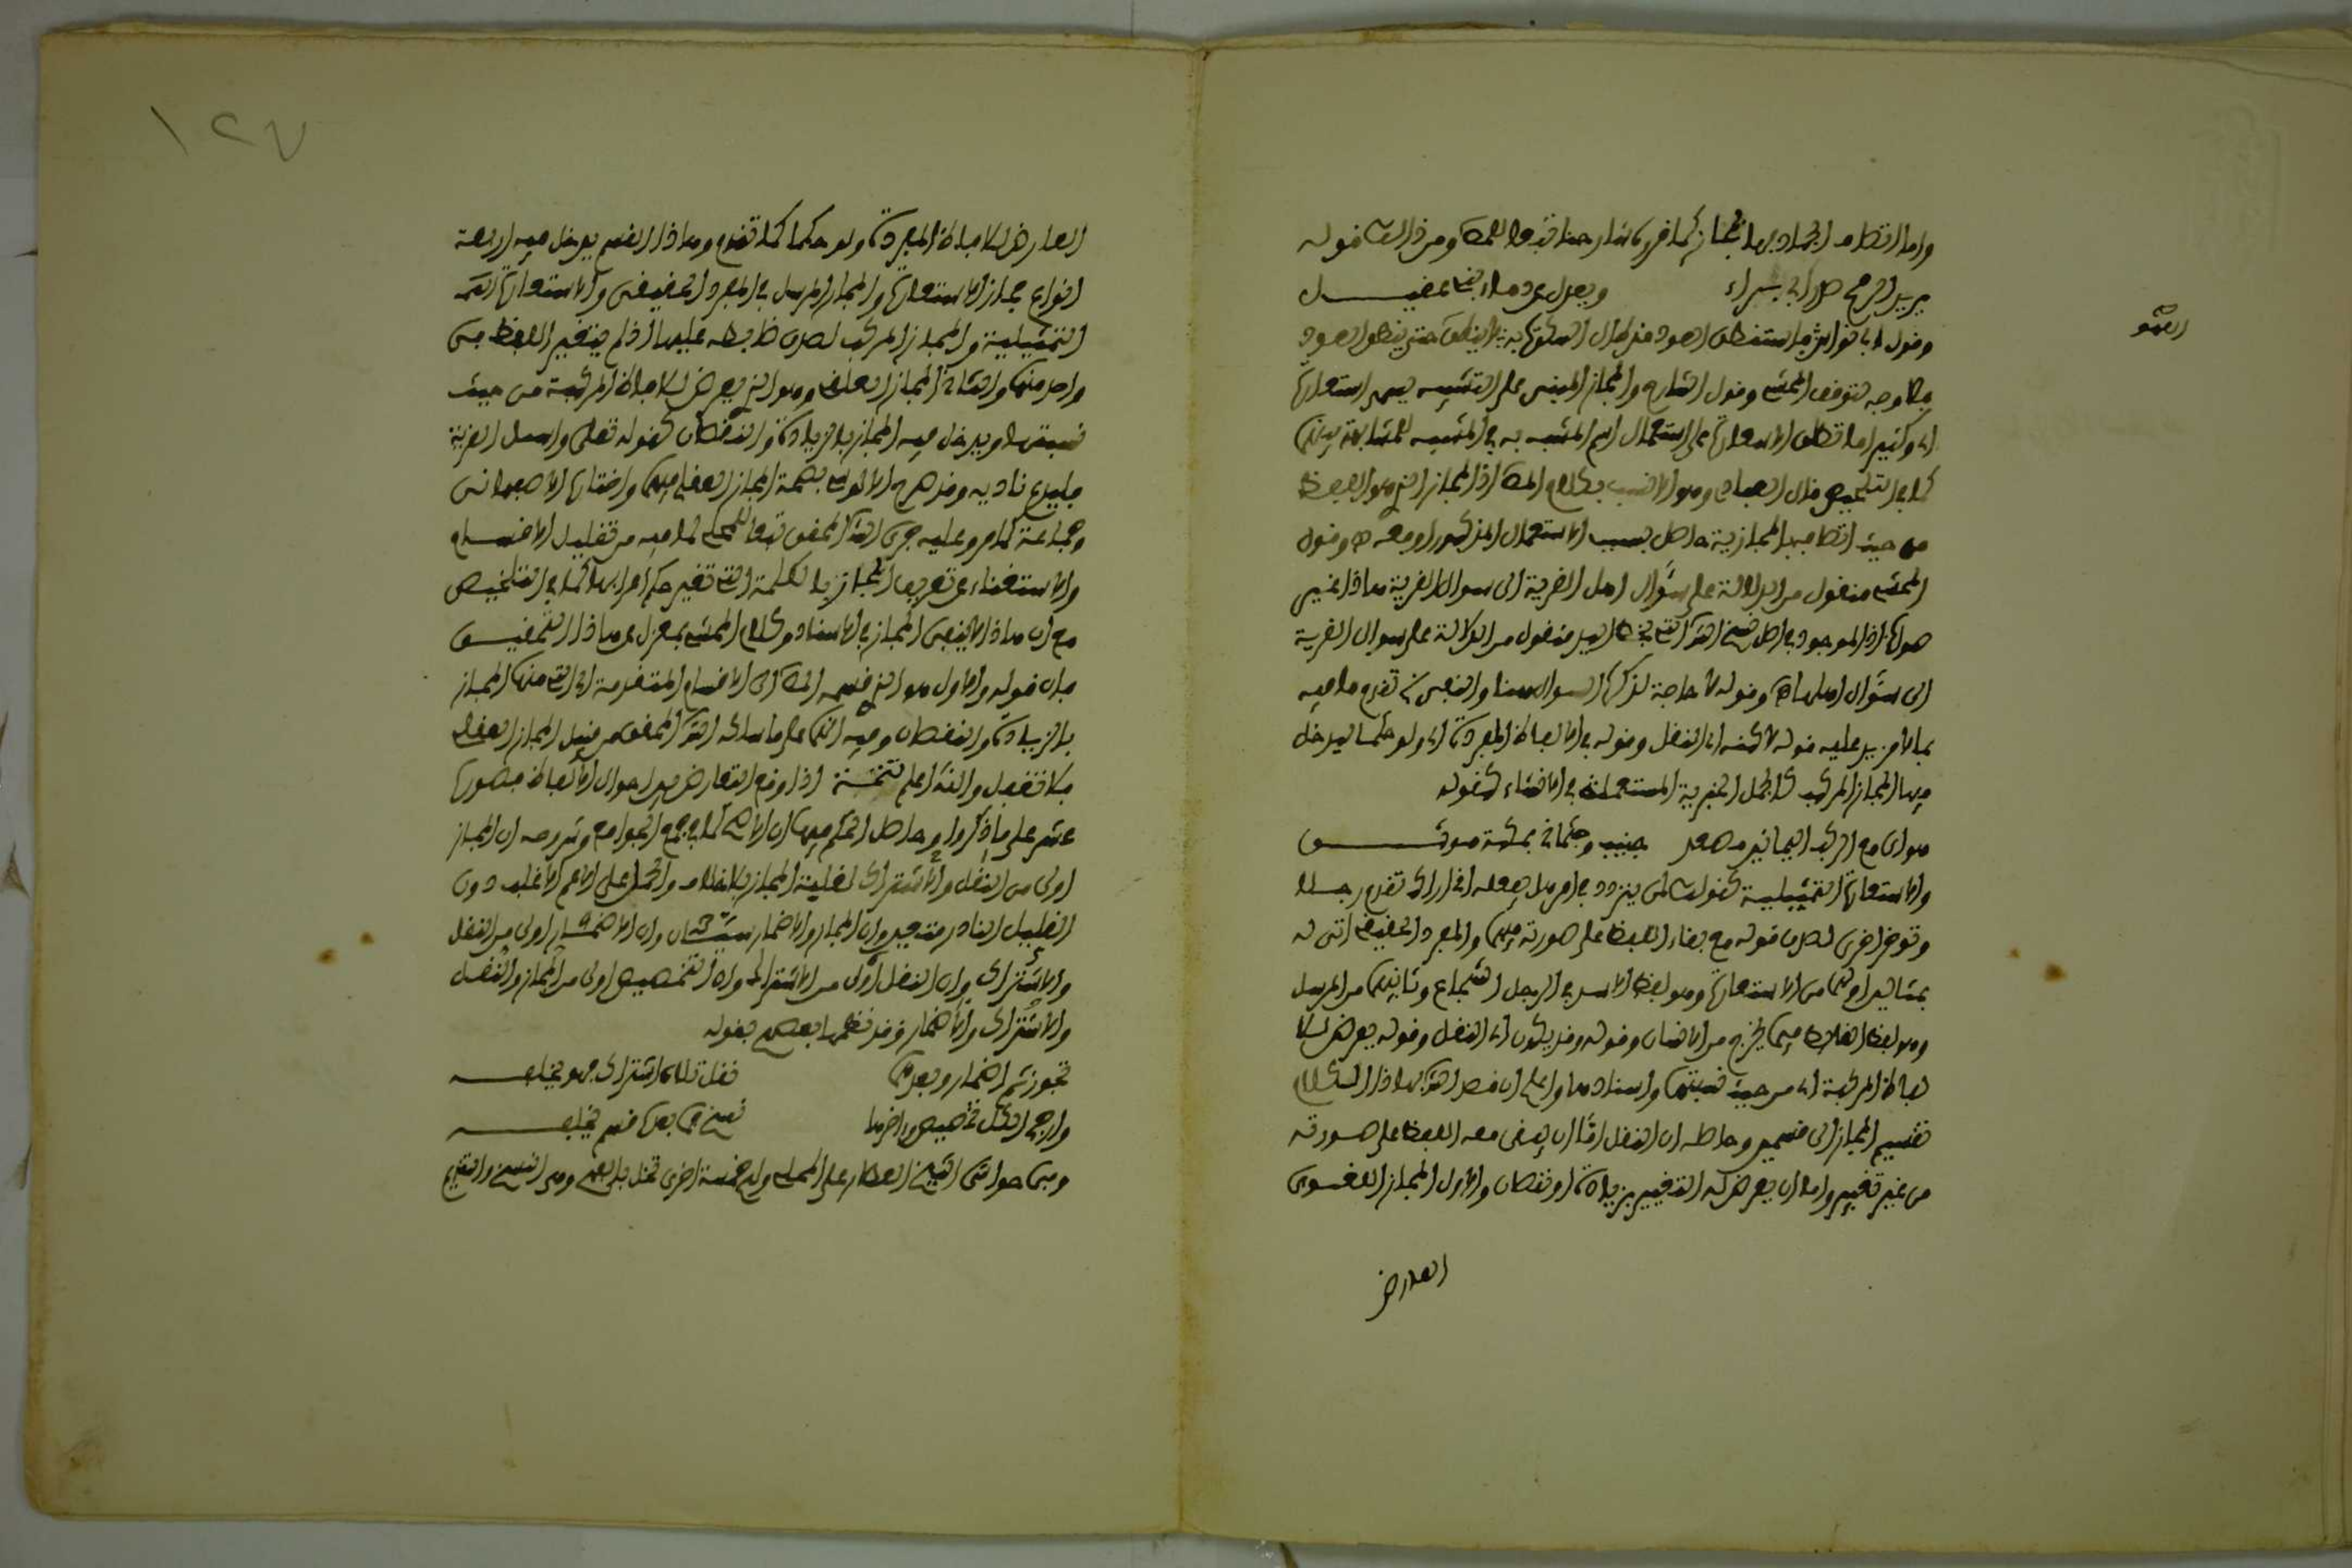 واما اتصاف الجماد بها فمجاز كما قرره شارحنا تبعا للمص ومن ذلك قوله
يريد الرمح صدر ابي براء ويعدل عن دماء بني عقيل
العود
فلا وجه لتوقف المحشي وقول الشارح والمجاز المبني على التشبيه يسمى استعارة
اي وكثيرا ما تطلق الاستعارة على استعمال اسم المشبه به في المشبه للمشابهة بينهما
كما في التلخيص قال العبادي وهو الانسب بكلام المص اذ المجاز الذي هو اللفظ
من حيث اتصافه بالمجازية حاصل بسبب الاستعمال المذكور او معه ه وقول
المحشي منقول من الدلالة على سؤال اهل القرية الى سؤال القرية هذا غير
صواب اذ الموجود في اصل نسخ الشرح التي بخط اليد منقول من الدلالة على سوال القرية
الى سؤال اهلها ه وقوله لا حاجة لذكر السوال هنا
بما لا مزيد عليه قوله لاكنه اي النقل وقوله في الالفاظ المفردة اي ولو حكما ليدخل
فيها المجاز المركب كالجمل الخبرية المستعملة في الانشاء كقوله
هواي مع الركب اليمانين مصعد جنيب وجثماني بمكة موثق
والاستعارة التمثيلية كقولك لمن يتردد في امر هل يفعله اني اراك تقدم رجلا
وتوخر اخرى لصدق قوله مع بقاء اللفظ على صورته فيهما والمفرد الحقيقي اتى له
بمثالين اولهما من الاستعارة وهو لفظ الاسد في الرجل الشجاع وثانيهما من المرسل
وهو لفظ الغائط فيما يخرج من الانسان وقوله وقد يكون اي النقل وقوله يعرض للا
لفاظ المركبة اي من حيث نسبتها واسنادها واعلم ان قصد الشرح بهذا الكلام
تقسيم المجاز الى قسمين وحاصله ان النقل اما ان يبقى معه اللفظ على صورته
من غير تغيير واما ان يعرض له التغيير بزيادة او نقصان والاول المجاز اللغوي
العارض
١٢٧
العارض للالفاظ المفردة ولو حكما كما تقدم وهذا القسم يدخل فيه اربعة
انواع مجاز الاستعارة والمجاز المرسل في المفرد الحقيقي والاستعارة
التمثيلية والمجاز المركب لصدق ضابطه عليها اذ لم يتغير اللفظ في
واحد منها والثاني المجاز العقلي وهو الذي يعرض للالفاظ المركبة من حيث
نسبتها ويدخل فيه المجاز بالزيادة والنقصان كقوله تعالى واسال القرية
فليدع ناديه وقد صرح بتسمية المجاز العقلي فيهما واختاره الاصبهاني
وجماعة كما مر وعليه جرى الشرح المحقق تبعا للمص لما فيه من تقليل الاقسام
والاستغناء عن تعريف المجاز بالكلمة التي تغير حكم اعرابها كما في التلخيص
مع ان هذا لا ينفي المجاز في الاسناد وكلام المحشي بمعزل عن هذا التحقيق
فان قوله والاول هو الذي قسمه المص الى الاقسام المتقدمة اي التي منها المجاز
بالزيادة والنقصان وفيه انه على ما سلكه الشرح المحقق من قبيل المجاز العقلي
فلا تغفل والله اعلم تتمة اذا وقع التعارض بين احوال الالفاظ فصوره
عشر على ما ذكروا وحاصل الحكم فيها ان الاصح كما في جمع الجوامع وشروحه ان المجاز
اولى من النقل والاشتراك لغلبة المجاز بالاتفاق والحمل على الاعم الاغلب دون
القليل النادر متعين وان المجاز والاضمار سيان وان الاضمار اولى من النقل
والاشتراك وان النقل اولى من الاشتراك وان التخصيص اولى من المجاز والنقل
والاشتراك والاضمار وقد نظمها بعضهم بقوله
تجوز ثم اضمار وبعدهما نقل تلاه اشتراك فهو يخلفه
وارجح الكل تخصيص واخرها نسخ فما بعده قسم يخلفه
وفي حواشي الشيخ العطار على المحلي وله خمسة اخرى تخل بالفهم وهي النسخ والتقديم